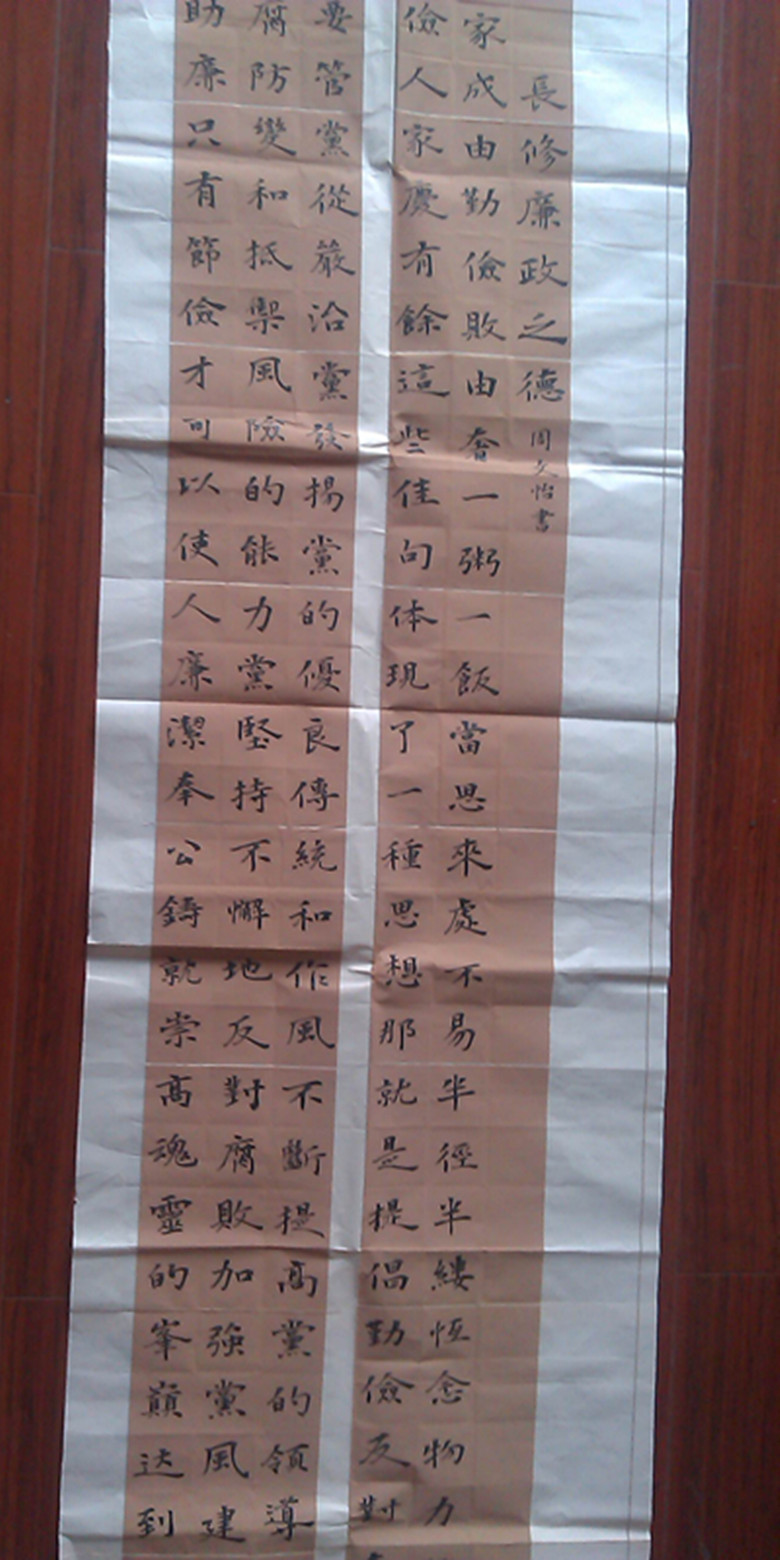 長修廉政之德 周文怡書
家成由勤儉敗由奢一粥一飯當思來處不易半徑半縷恆念物力
儉人家慶有餘這些佳句体現了一種思想那就是提倡勤儉反對
要管黨從嚴沿黨發揚黨的優良傳統和作風不斷提高黨的領導
腐防變和抵禦風險的能力黨堅持不懈地反對腐敗加強黨風建
助廉只有節儉才可以使人廉潔奉公鑄就崇高魂靈的峯巔达到